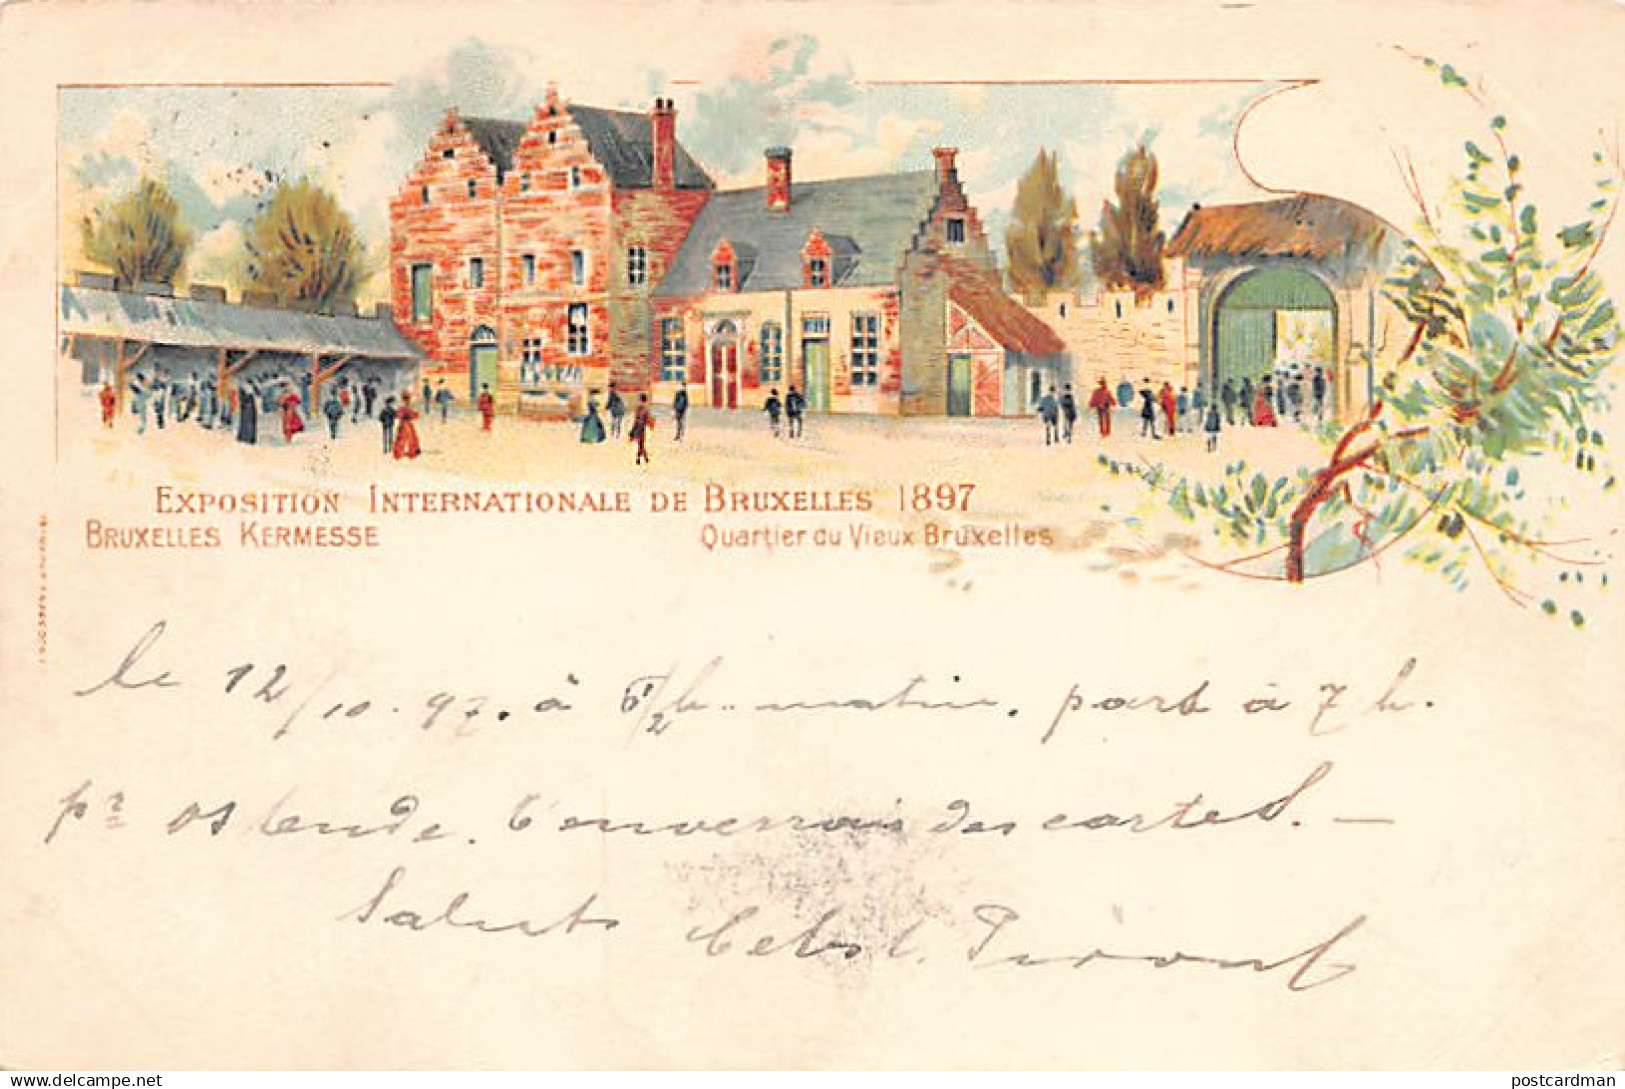 EXPOSITION INTERNATIONALE DE BRUXELLES 1897
BRUXELLES KERMESSE
Quartier du Vieux Bruxelles
le 12/10.97. à 6 1/2 h.. matin. part à 7 h.
pr ostende. T'enverrais des cartes. —
Saluts
www.delcampe.net
postcardman